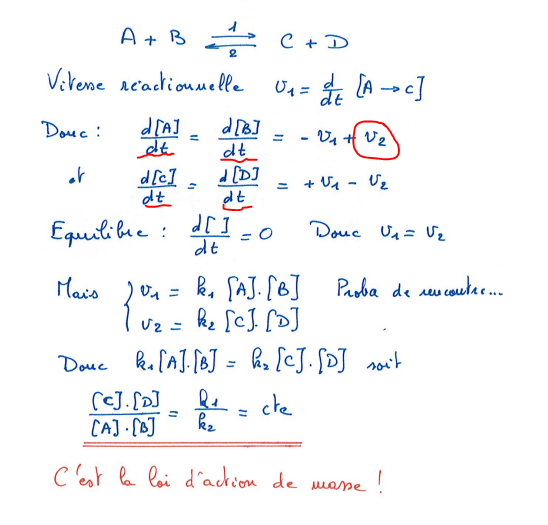 A + B ⇌ C + D
1
2
Vitesse réactionnelle v₁ = d/dt [A → C]
Donc : d[A]/dt = d[B]/dt = - v₁ + v₂
et d[C]/dt = d[D]/dt = + v₁ - v₂
Equilibre : d[ ]/dt = 0 Donc v₁ = v₂
Mais { v₁ = k₁ [A].[B] Proba de rencontre...
v₂ = k₂ [C].[D]
Donc k₁[A].[B] = k₂[C].[D] soit
[C].[D]/[A].[B] = k₁/k₂ = cte
C'est la loi d'action de masse !